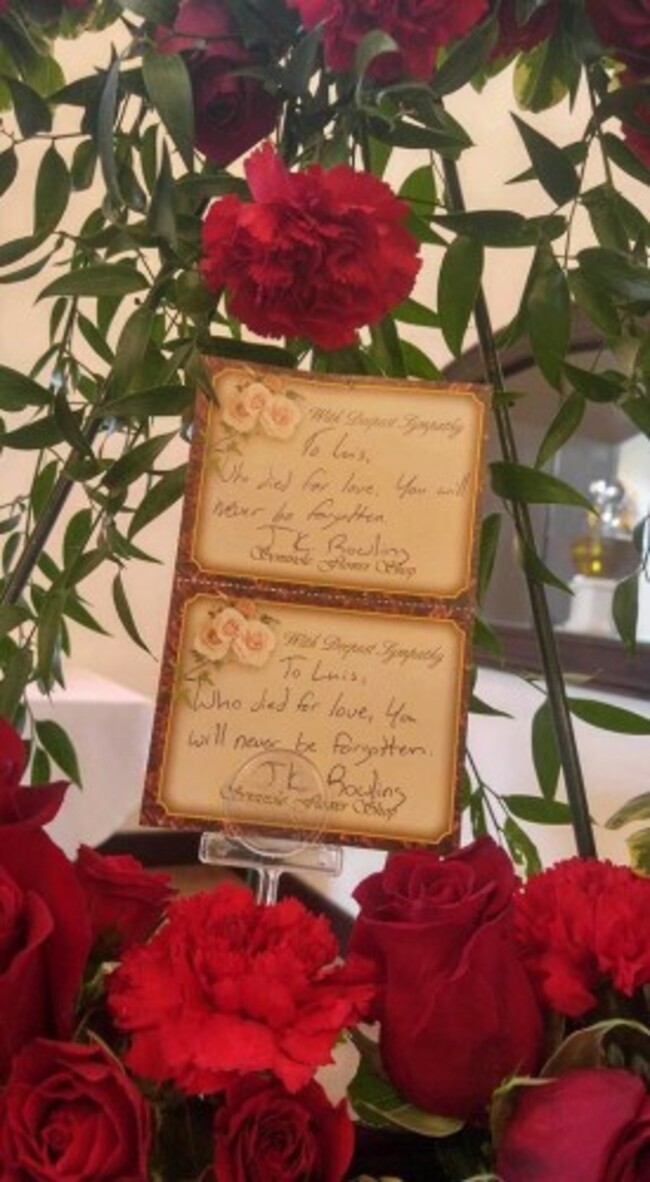 With Deepest Sympathy
To Luis,
Who died for love, You will
never be forgotten.
J K Rowling
Seminole Flower Shop
With Deepest Sympathy
To Luis,
Who died for love, You
will never be forgotten.
J K Rowling
Seminole Flower Shop